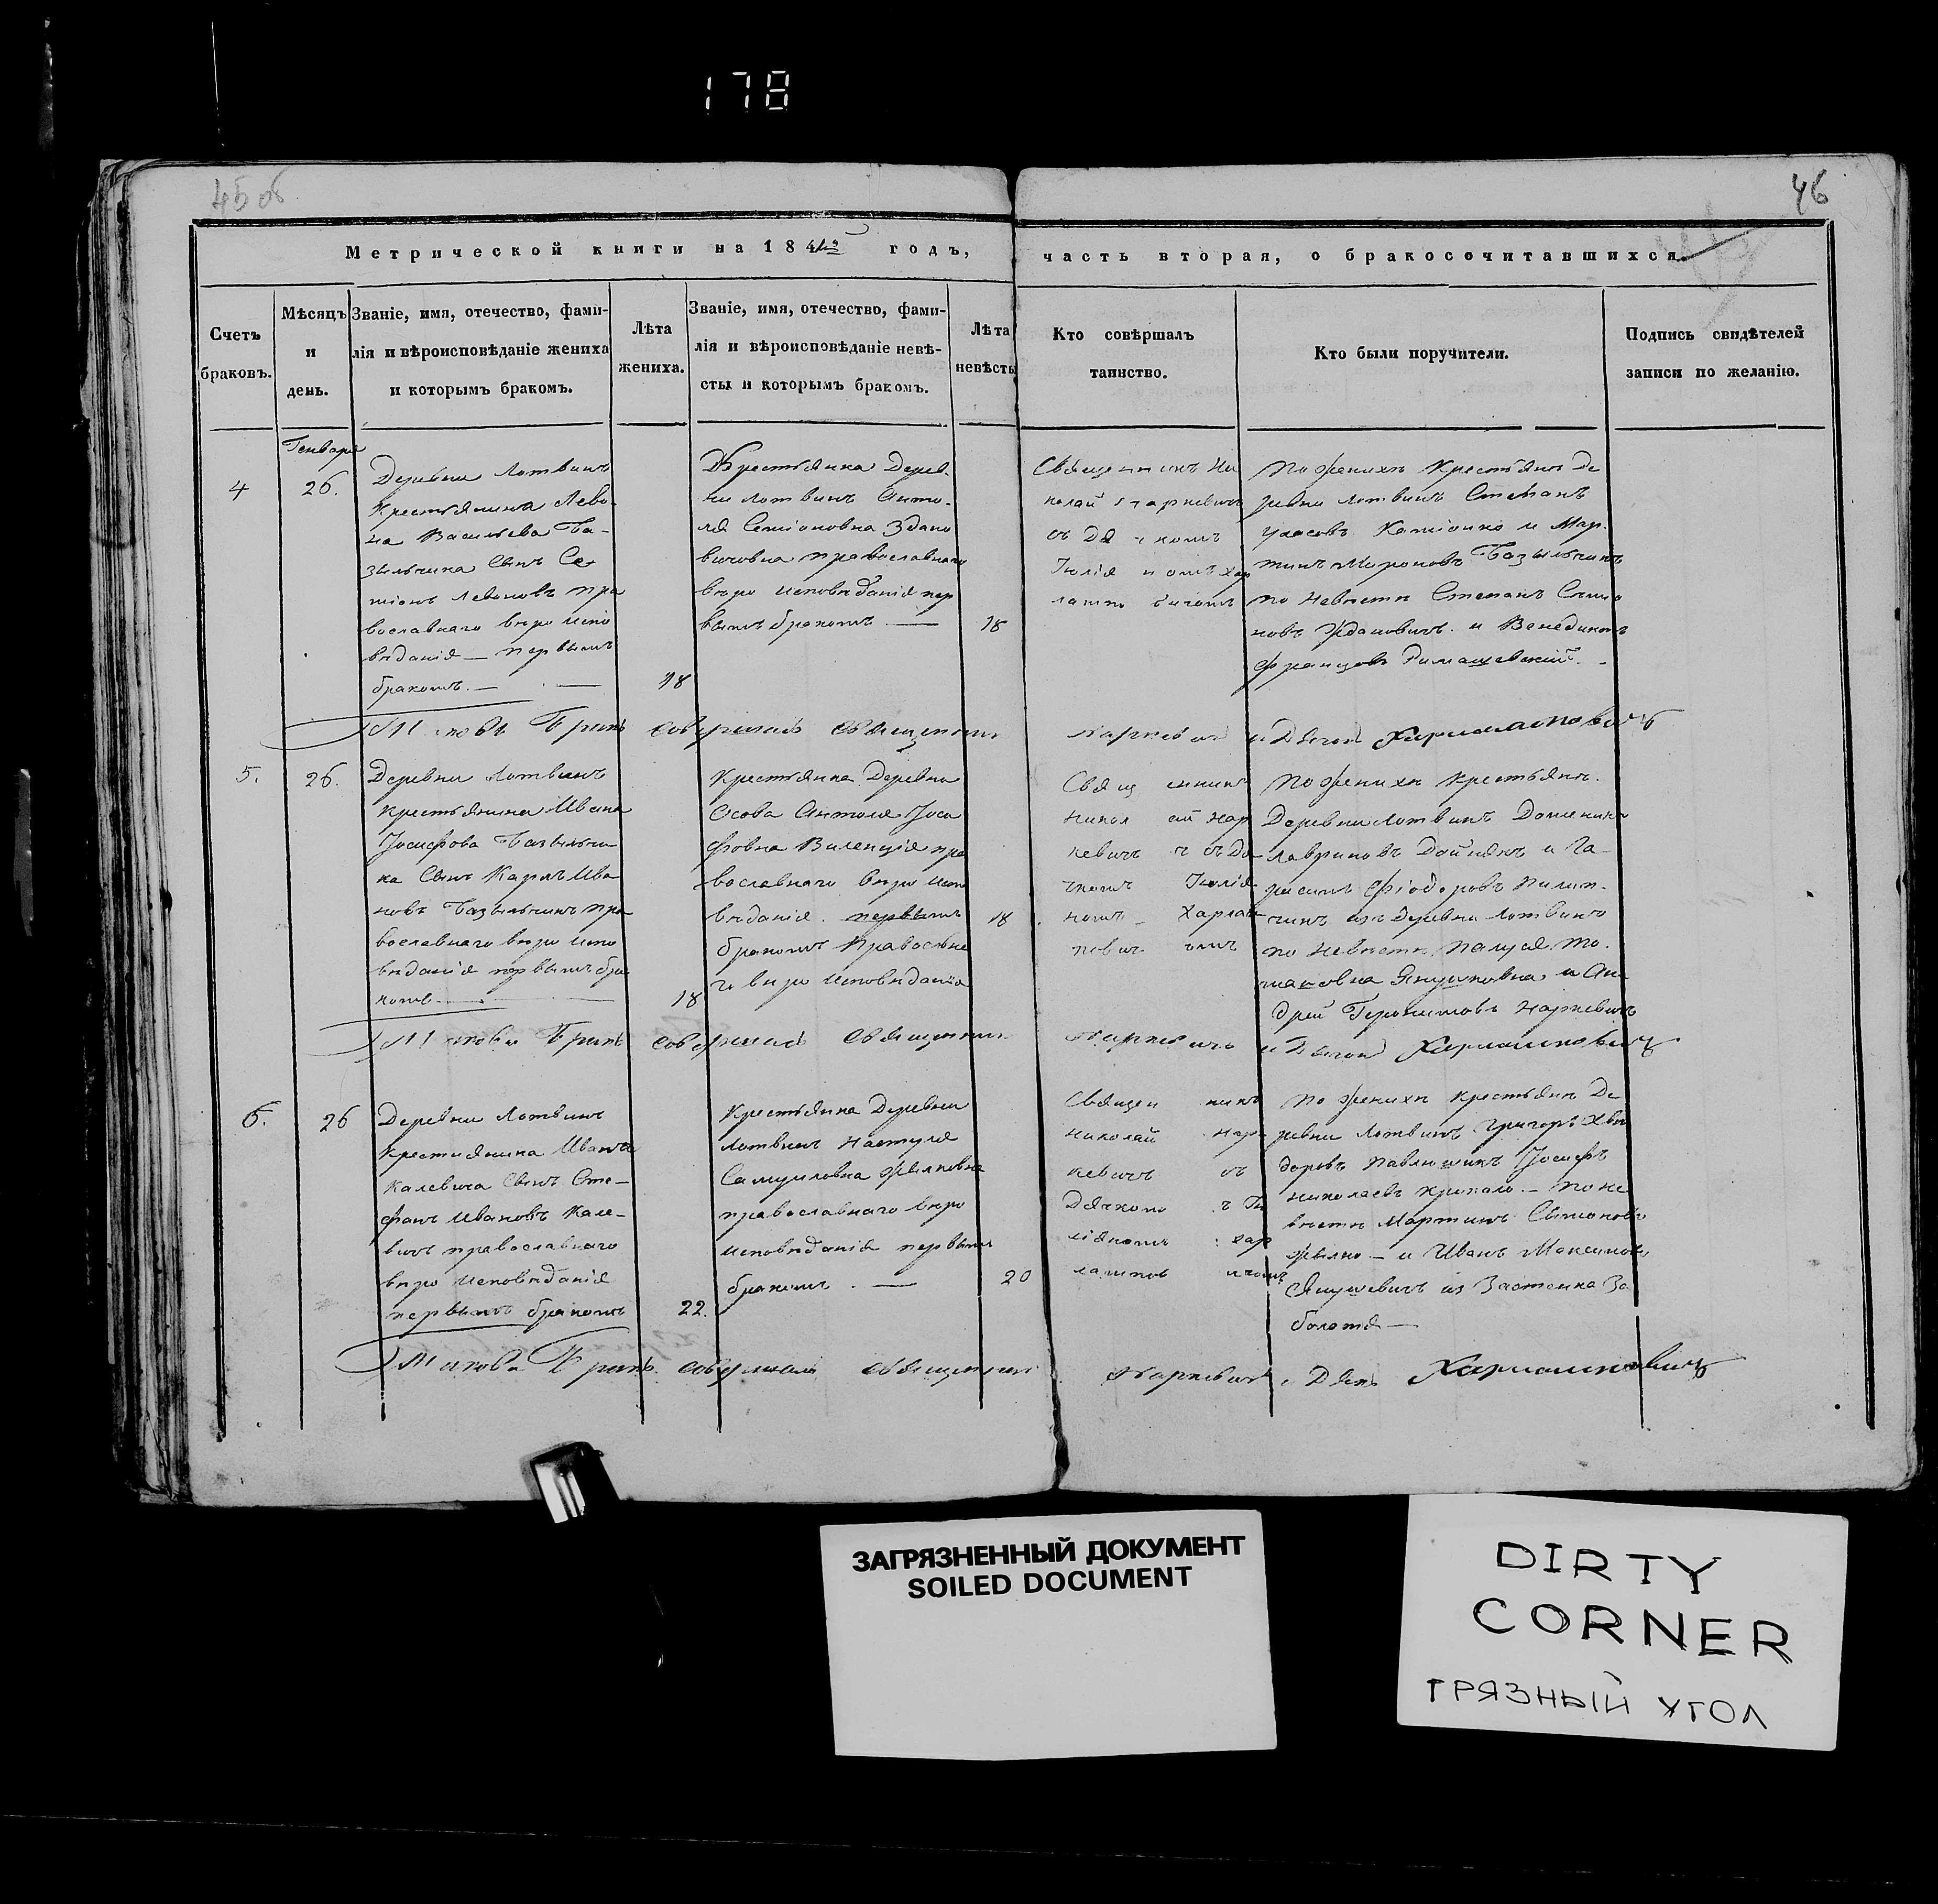 178
45 об
46
Метрической книги на 1841й годъ, часть вторая, о бракосочитавшихся
Счетъ браковъ.
Мѣсяцъ и день.
Званіе, имя, отечество, фами-
лія и вѣроисповѣданіе жениха
и которымъ бракомъ.
Лѣта
жениха.
Званіе, имя, отечество, фами-
лія и вѣроисповѣданіе невѣ-
сты и которымъ бракомъ.
Лѣта
невѣсты
Кто совѣршалъ
таинство.
Кто были поручители.
Подпись свидѣтелей
записи по желанію.
Генваря
4
26.
Деревни Лотвинъ
Крестьянина Лево-
на Васильева Ба-
зыльчика Сынъ Се-
міонъ Левоновъ пра
вославнаго вѣро испо
вѣданія — первымъ
бракомъ. —
18
Крестьянка Дерев-
ни Лотвинъ Анто-
ля Семіоновна Здано
вичовна православнаго
вѣро исповѣданія пер
вымъ бракомъ —
18
Священникъ Ни
колай Наркевичъ
съ Дя чкомъ
Іюлія номъ Хар
лампо вичомъ
по женихѣ Крестьянъ Де
ревни Лотвинъ Степанъ
Уласовъ и Мар-
тинъ Мироновъ Базыльчикъ
по Невѣстѣ Степанъ Семіо
новъ Ждановичъ и Венедиктъ
Францовъ Римашевскій. -
совершалъ Священникъ Наркевичъ и Дячокъ Харламповичъ
5.
26.
Деревни Лотвинъ
Крестьянина Ивана
Іосифова Базыльчи
ка Сынъ Карлъ Ива
новъ Базыльчикъ пра
вославнаго вѣро испо
вѣданія первымъ бра
комъ —
18
Крестьянка Деревни
Осова Антоля Іоси
фовна Виленція пра
вославнаго вѣро испо
вѣданія. первымъ
бракомъ Православна
го вѣро исповѣданія
18
Свящ енникъ
Никол ай Нар
кевич ъ съ Дя
чкомъ Іюлія
номъ Харлам
пович омъ
по женихѣ Крестьянъ.
Деревни Лотвинъ Доминикъ
Лавриновъ и Га-
расимъ Фіодоровъ
изъ Деревни Лотвинъ
по Невѣстѣ То-
и Ан-
дрей Геронимовъ Наркевичъ
совершалъ Священникъ Наркевичъ и Дячокъ Харламповичъ
6.
26
Деревни Лотвинъ
Крестиянина Ивана
Калевича Сынъ Сте-
фанъ Ивановъ Кале-
вичъ православнаго
вѣро исповѣданія
первымъ бракомъ
22.
Крестьянка Деревни
Лотвинъ Настуля
Самуиловна Жылковна
православнаго вѣро
исповѣданія первымъ
бракомъ. —
20
Священ никъ
Николай Нар
кевичъ съ
Дячкомъ Ію
ліяномъ Хар
лампов ичомъ
по женихѣ крестьянъ Де
ревни Лотвинъ Григоръ Хвіо
доровъ Іосифъ
Николаевъ — по не
вѣстѣ Мартинъ Сымоновъ
Жылко — и Иванъ Максимовъ
Янушевичъ из Застенка За
болотя —
совершалъ Священникъ Наркевичъ и Дякъ Харламповичъ
ЗАГРЯЗНЕННЫЙ ДОКУМЕНТ
SOILED DOCUMENT
DIRTY
CORNER
ГРЯЗНЫЙ УГОЛ